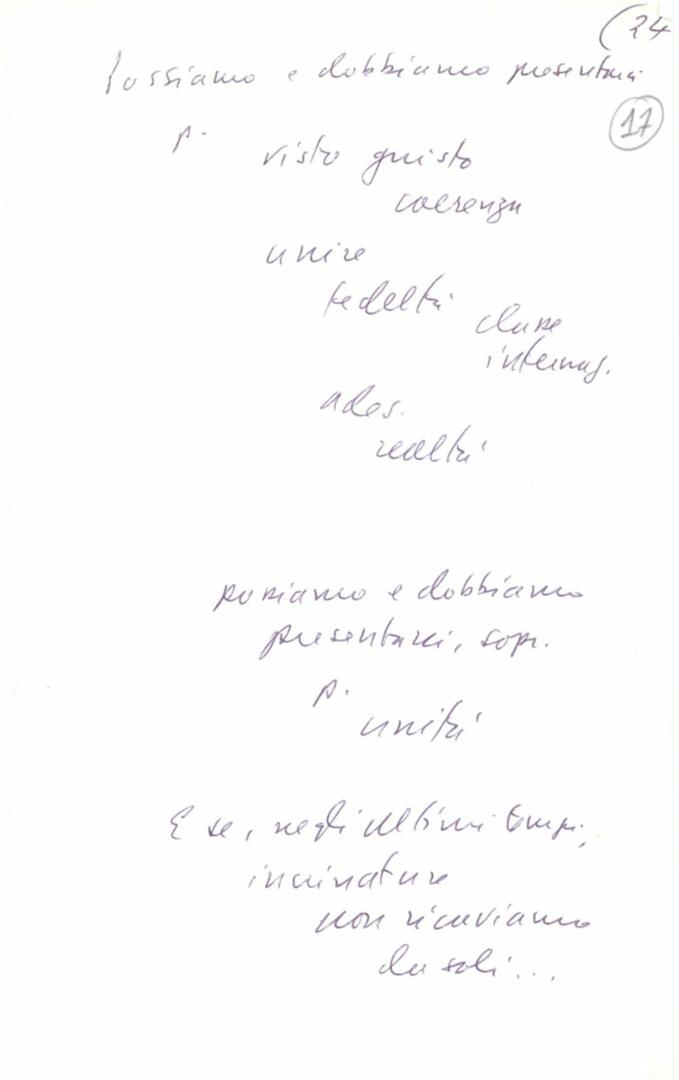 (24
Possiamo e dobbiamo presentarci
17
p.
visto giusto
coerenza
unire
fedeltà
classe
internaz.
ades.
realtà
possiamo e dobbiamo
presentarci, sopr.
p.
unità
E se, negli ultimi tempi,
incrinature
non ricaviamo
da soli...